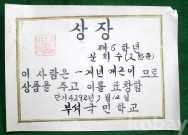 상장
제6학년
문희수
이 사람은 일개년 개근이므로
상품을 주고 이를 표창함
단기4292년 3월 12일
부석국민학교
kobay